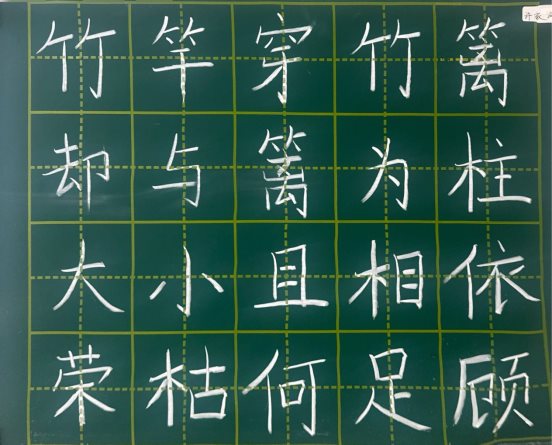 竹竿穿竹篱
却与篱为柱
大小且相依
荣枯何足顾